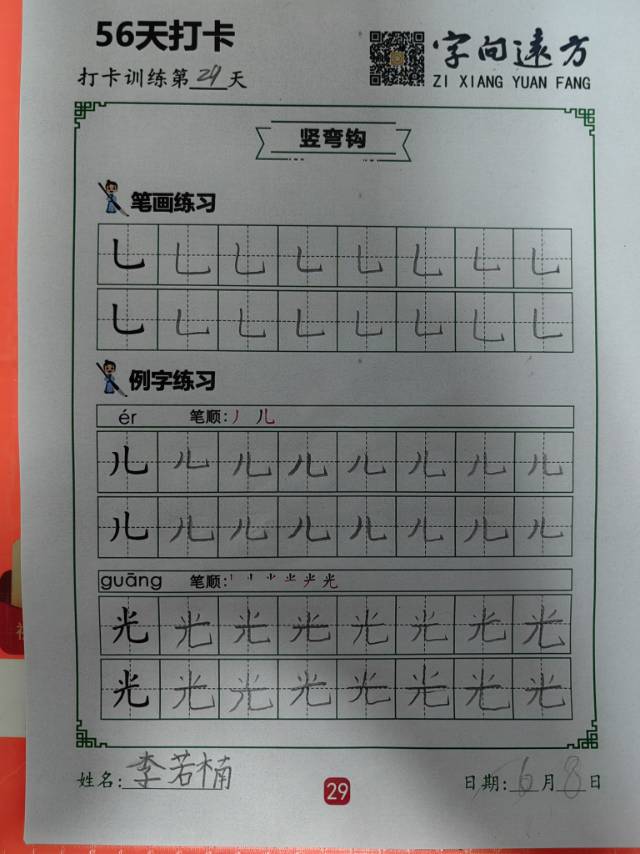 56天打卡
字向远方
打卡训练第29天
ZI XIANG YUAN FANG
竖弯钩
笔画练习
乚 乚 乚 乚 乚 乚 乚 乚
乚 乚 乚 乚 乚 乚 乚 乚
例字练习
ér 笔顺:丿 儿
儿 儿 儿 儿 儿 儿 儿 儿
儿 儿 儿 儿 儿 儿 儿 儿
guāng 笔顺:
光 光 光 光 光 光 光 光
光 光 光 光 光 光 光 光
姓名:李若楠
29
日期:6月8日